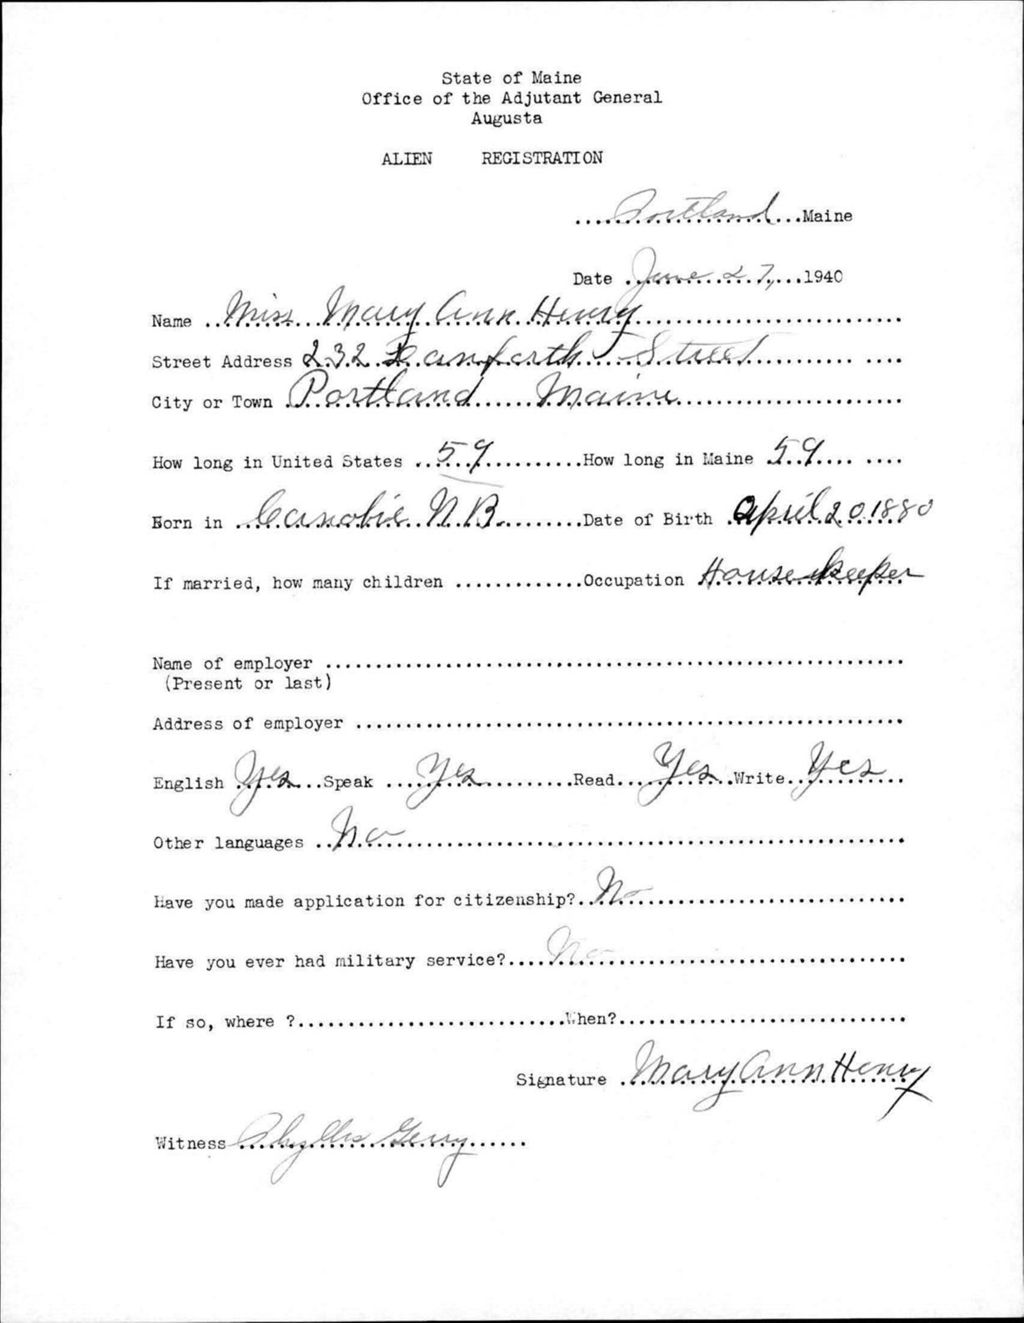 State of Maine
Office of the Adjutant General
Augusta
ALIEN REGISTRATION
....Portland...Maine
Date ..June 27,...1940
Name ..Miss Mary Ann Henry
Street Address 232 Danforth Street
City or Town Portland Maine
How long in United States ..59..........How long in Maine .59.... ....
Born in .Canobie N.B.........Date of Birth .April 20 1880
If married, how many children .............Occupation Housekeeper
Name of employer ..........................................................
(Present or last)
Address of employer .......................................................
English Yes...Speak ...Yes..........Read...Yes..Write..Yes
Other languages ..No
Have you made application for citizenship?..No
Have you ever had military service?....No
If so, where ?...........................When?.............................
Signature .Mary Ann Henry
Witness Phyllis Gerry......